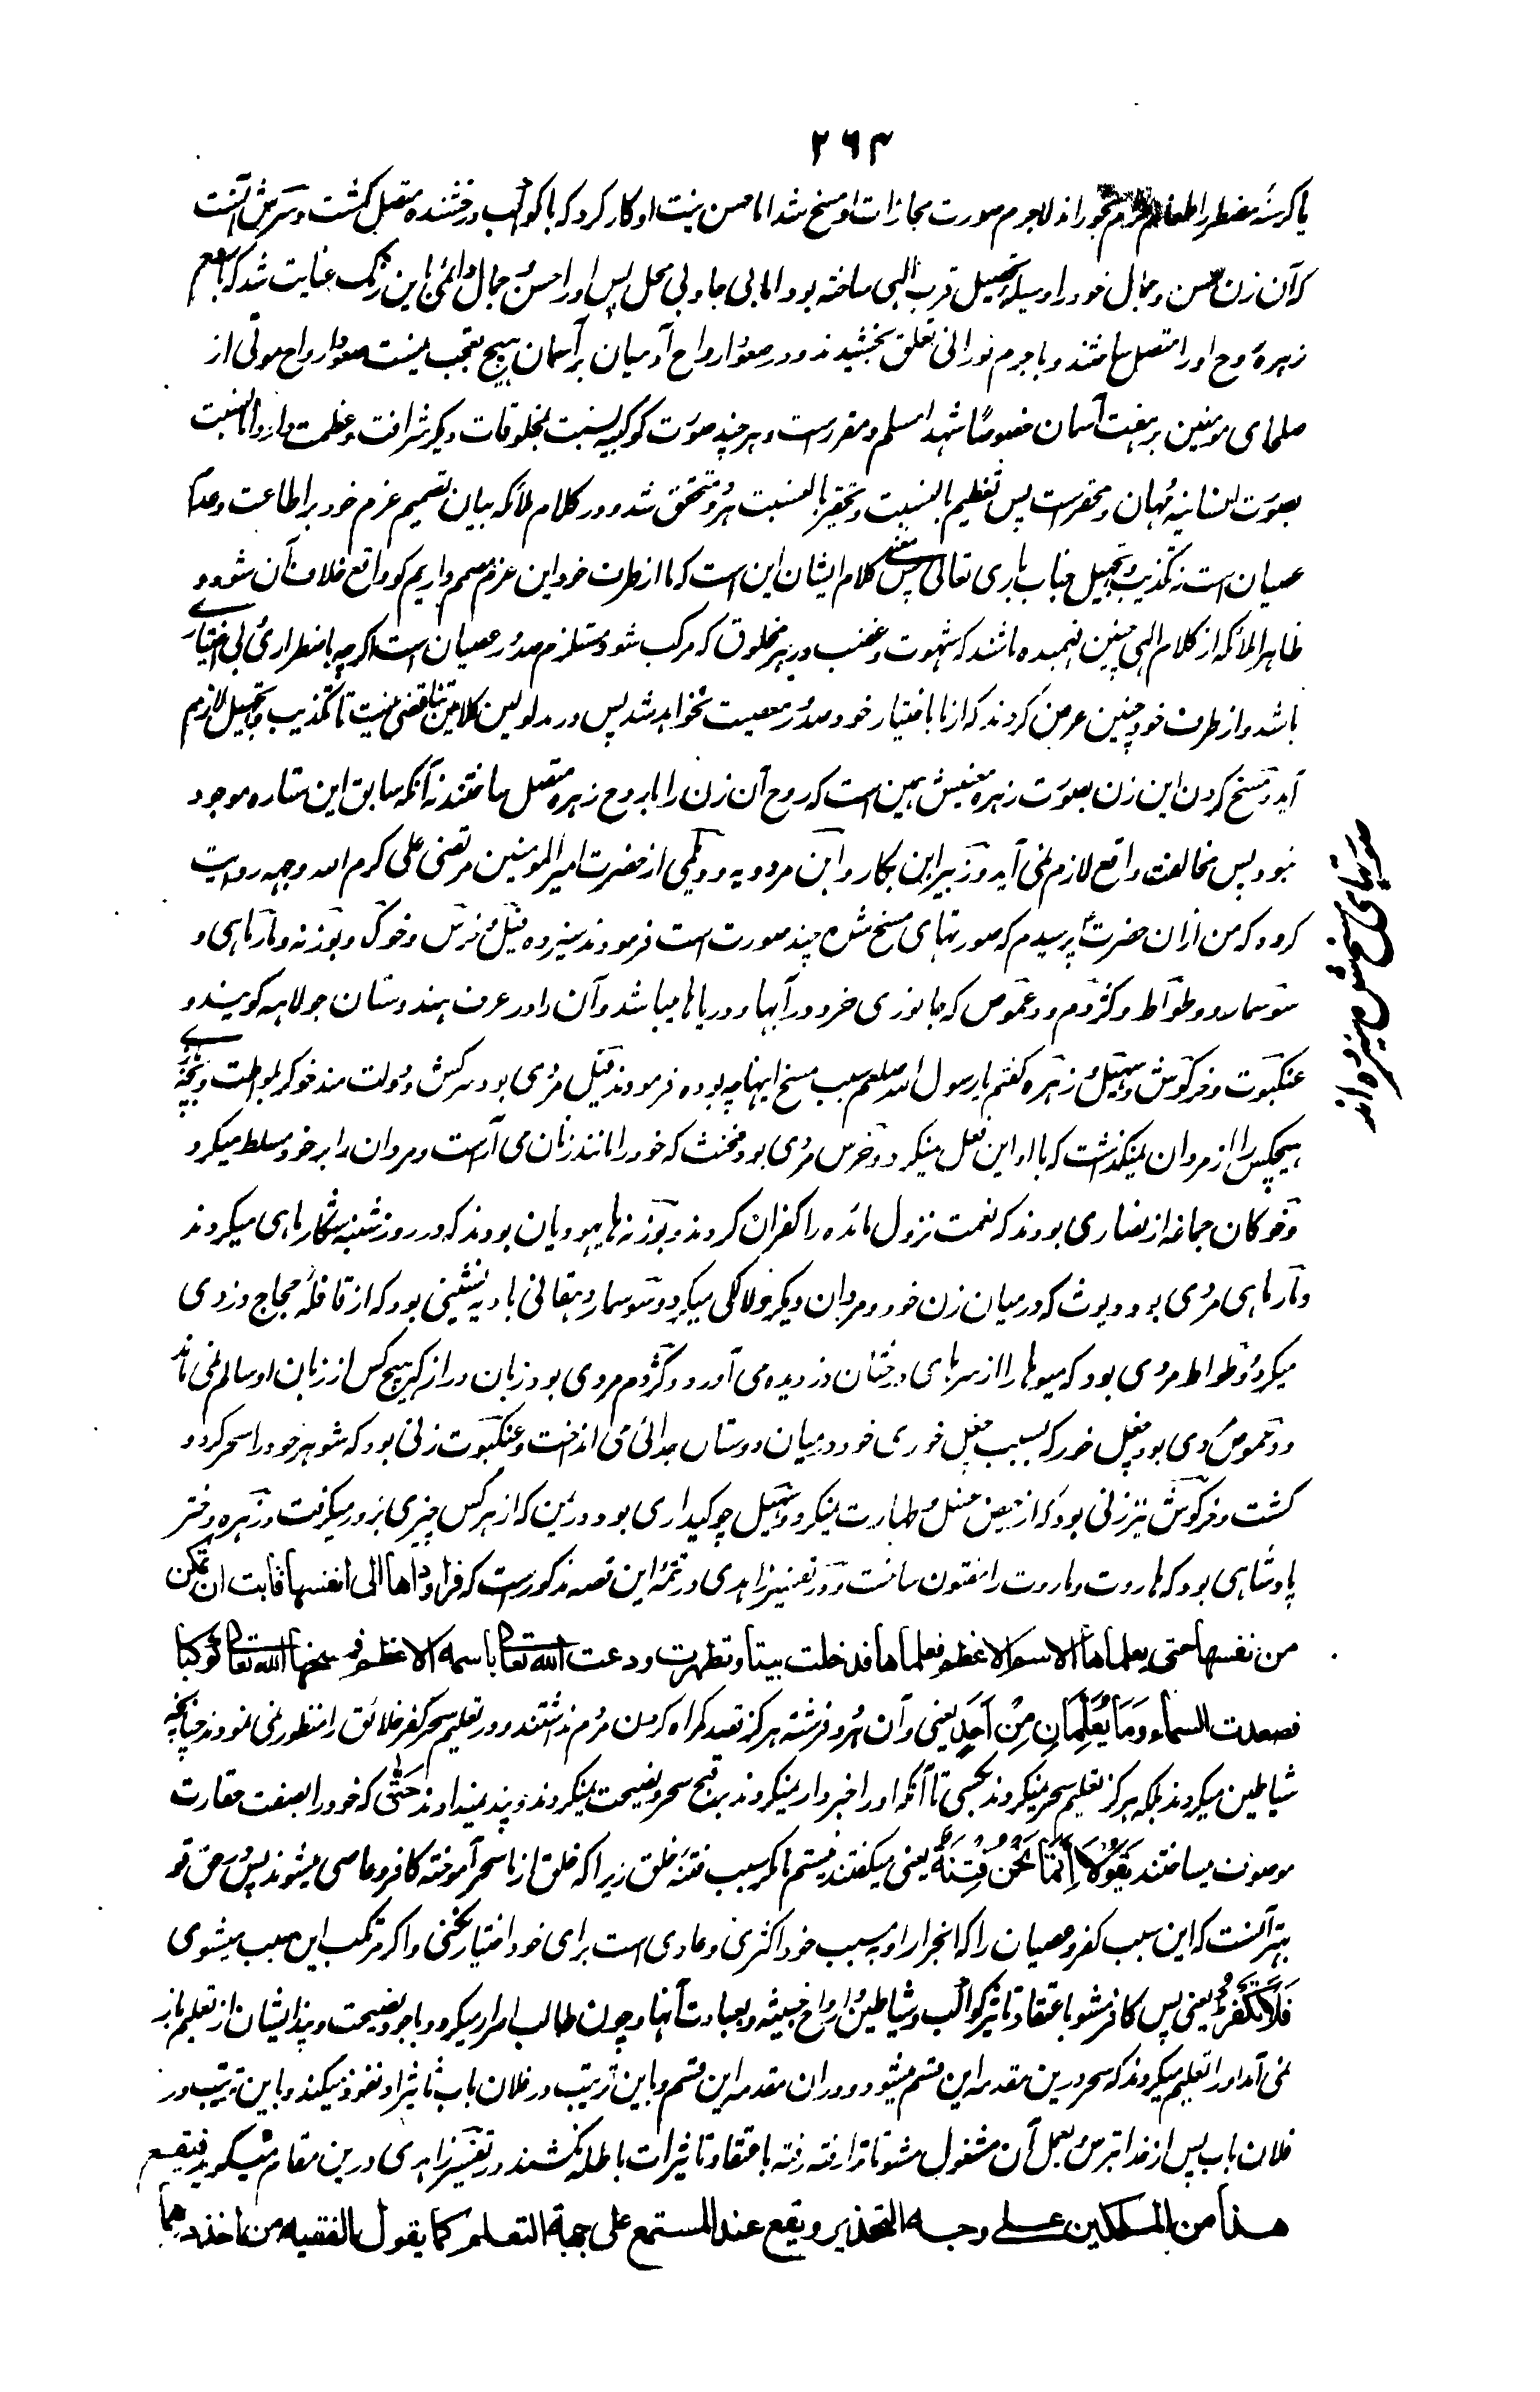 ۲۶۴
یا گرسنه مضطر را طعام محرم بخوراند لاجرم صورت مجازات او مسخ شد اما حسن نیت او کار کرد که با کواکب درخشنده متصل گشت و سرش آنست
که آن زن حسن و جمال خود را وسیلۀ تحصیل قرب الهی ساخته بود اما بی جا و بی محل پس او را حسن و جمال دائمی باین رنگ عنایت شد که با
زهره روح او را متصل ساختند و با جرم نورانی تعلق بخشیدند و در صعود ارواح آدمیان بر آسمان هیچ تعجب نیست صعود ارواح موتی از
صلحای مومنین بر هفت آسمان خصوصاً شهدا مسلم و مقررست و هر چند صورت کوکبیه بنسبت مخلوقات دیگر شرافت و عظمت دارد اما بنسبت
بصورت انسانیه مُهان و محقرست پس تعظیم بالنسبت و تحقیر بالنسبت هر دو متحقق شد و در کلام ملائکه بیان تصمیم عزم خود بر اطاعت و عدم
عصیان است نه تکذیب و تجهیل جناب باری تعالی پس معنی کلام ایشان این است که ما از طرف خود این عزم مصمم داریم گو واقع خلاف آن شود و
ظاهرا ملائکه از کلام الهی چنین فهمیده باشند که شهوت و غضب در هر مخلوق که مرکب شود مستلزم صدور عصیان است اگرچه باضطرار و بی اختیاری
باشد و از طرف خود چنین عرض کردند که از ما باختیار خود صدور معصیت نخواهد شد پس در مدلولین کلامین تناقض نیست تا تکذیب و تجهیل لازم
آید و مسخ کردن این زن بصورت زهره معنیش همین است که روح آن زن را با روح زهره متصل ساختند نه آنکه سابق این ستاره موجود
نبود پس مخالفت واقع لازم نمی آید و زبیر ابن بکار و ابن مردویه و دیلمی از حضرت امیر المومنین مرتضی علی کرم الله وجهه روایت
کرده که من ازان حضرت پرسیدم که صورتهای مسخ شده چند صورت است فرمودند سیزده فیل و خرس و خوک و بوزنه و مارماهی و
سوسمار و وطواط و کژدم و دعموص که جانوری خرد در آبها و دریاها میباشد و آن را در عرف هندوستان جولاهه گویند و
عنکبوت و خرگوش و سهیل و زهره گفتم یا رسول الله صلعم سبب مسخ اینها چه بوده فرمودند فیل مردی بود سرکش و دولت مند خوگر بلواطت و بچه بازی
هیچکس را از مردان نمیگذاشت که با او این فعل نمیکرد و خرس مردی بود مخنث که خود را مانند زنان می آراست و مردان را بر خود مسلط میکرد
و خوکان جماعه از نصاری بودند که نعمت نزول مائده را کفران کردند و بوزنه ها یهودیان بودند که در روز شنبه شکار ماهی میکردند
و مارماهی مردی بود دیوث که در میان زن خود و مردان دیگر دلالگی میکرد و سوسمار دهقانی بادیه نشینی بود که از قافلۀ حجاج دزدی
میکرد و وطواط مردی بود که میوه ها را از سرهای درختان دزدیده می آورد و کژدم مردی بود زبان دراز که هیچ کس از زبان او سالم نمی ماند
و دعموص مردی بود چغل خور که بسبب چغل خوری خود درمیان دوستان جدائی می انداخت و عنکبوت زنی بود که شوهر خود را سحر کرد و
کشت و خرگوش نیز زنی بود که از حیض غسل و طهارت نمیکرد و سهیل چوکیداری بود در یمن که از هر کس چیزی بزور میگرفت و زهره دختر
پادشاهی بود که هاروت و ماروت را مفتون ساخت و در تفسیر زاهدی در تتمه این قصه مذکورست که فراوداها الی انفسها فابت ان تمکن
من نفسها حتی یعلماها الاسم الاعظم فعلماها فدخلت بیتا و تطهرت و دعت الله تعالی باسمه الاعظم فمسخها الله تعالی کوکبا
فصعدت السماء وَمَا يُعَلِّمَانِ مِنْ أَحَدٍ یعنی و آن هر دو فرشته هرگز قصد گمراه کردن مردم نداشتند و در تعلیم سحر کفر خلائق را منظور نمی نمودند چنانچه
شیاطین میکردند بلکه هرگز تعلیم سحر نمیکردند بکسی تا آنکه او را خبردار نمیکردند بر قبح سحر و نصیحت نمیکردند و پند نمیدادند حَتَّى که خود را بصفت حقارت
موصوف میساختند يَقُولَا إِنَّمَا نَحْنُ فِتْنَةٌ یعنی میگفتند نیستم ما مگر سبب فتنه خلق زیرا که خلق از ما سحر آموخته کافر و عاصی میشوند پس در حق تو
بهتر آنست که این سبب کفر و عصیان را که انجرار او به سبب خود اکثری و عادی است برای خود اختیار نکنی و اگر مرتکب این سبب میشوی
فَلَا تَكْفُرْ یعنی پس کافر مشو باعتقاد تاثیر کواکب و شیاطین و ارواح خبیثه و بعبادت آنها و چون طالب اصرار میکرد و باوجود نصیحت و پند ایشان از تعلیم باز
نمی آمد او را تعلیم میکردند که سحر درین مقدمه این قسم میشود و در آن مقدمه این قسم و باین ترتیب در فلان باب تاثیر او نفوذ میکند و باین ترتیب در
فلان باب پس از خدا بترس و بعمل آن مشغول مشو تا ترا رفته رفته باعتقاد تاثیرات باطله نکشند و در تفسیر زاهدی درین مقام میگوید فیقع
هذا من الملکین علی وجه التحذیر و یقع عند المستمع علی جهة التعلم کما یقول الفقیه من اخذ درهما
صورتهای مسخ شده سیزده اند